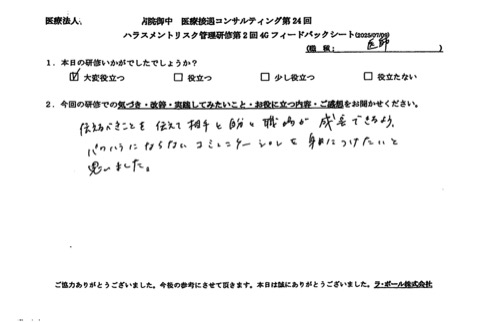 医療法人 病院御中 医療接遇コンサルティング第24回
ハラスメントリスク管理研修第2回4Gフィードバックシート(2025/07/09)
(職種: 医師 )
1．本日の研修いかがでしたでしょうか？
☑ 大変役立つ □ 役立つ □ 少し役立つ □ 役立たない
2．今回の研修での気づき・改善・実践してみたいこと・お役に立つ内容・ご感想をお聞かせください。
伝えるべきことを伝えて相手と自分と職場が成長できるよう、
パワハラにならないコミュニケーションを身につけたいと
思いました。
ご協力ありがとうございました。今後の参考にさせて頂きます。本日は誠にありがとうございました。ラ・ポール株式会社